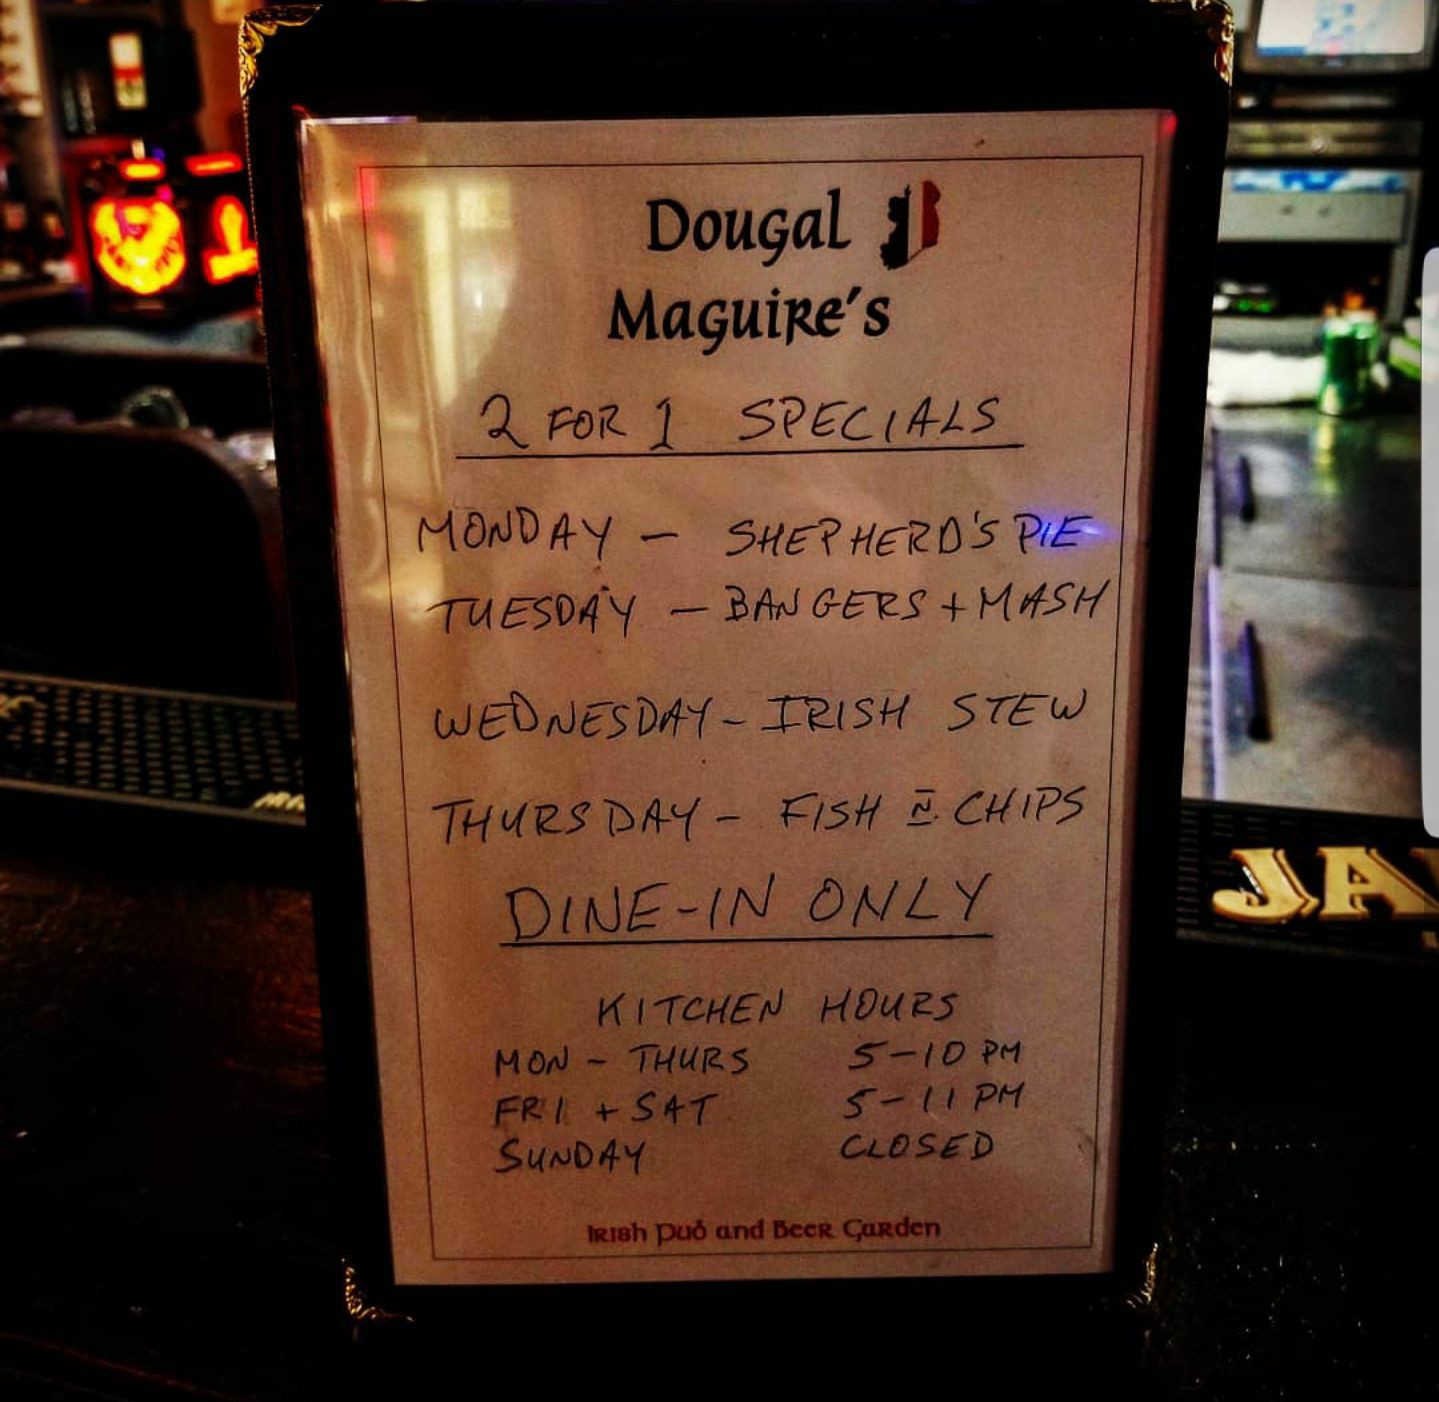 Dougal
Maguire's
2 FOR 1 SPECIALS
MONDAY - SHEPHERD'S PIE
TUESDAY - BANGERS + MASH
WEDNESDAY - IRISH STEW
THURSDAY - FISH N CHIPS
DINE-IN ONLY
KITCHEN HOURS
MON - THURS 5-10 PM
FRI + SAT 5-11 PM
SUNDAY CLOSED
Irish Pub and Beer Garden
JA